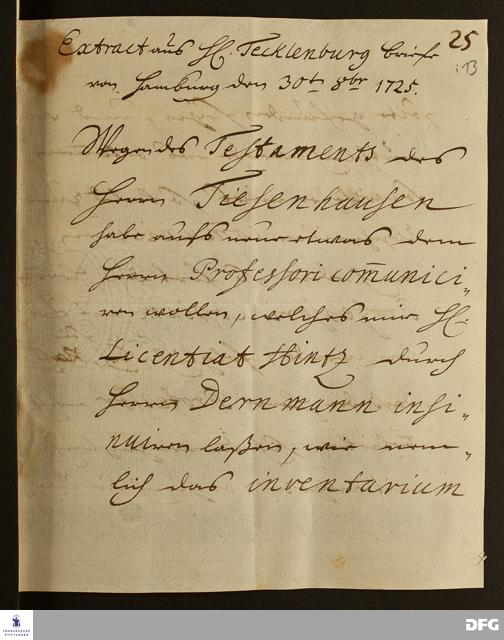 25
:13
Extract aus H. Tecklenburg briefe
von Hamburg den 30t 8br 1725.
Wegen des Testaments des
Herrn Tiesenhausen
habe aufs neue etwas dem
Herrn Professori com̄unici„
ren wollen, welches mir H.
Licentiat Hintz durch
Herrn Dernmann insi„
nuiren laßen, wie nem„
lich das inventarium
FRANCKESCHE
STIFTUNGEN
DFG